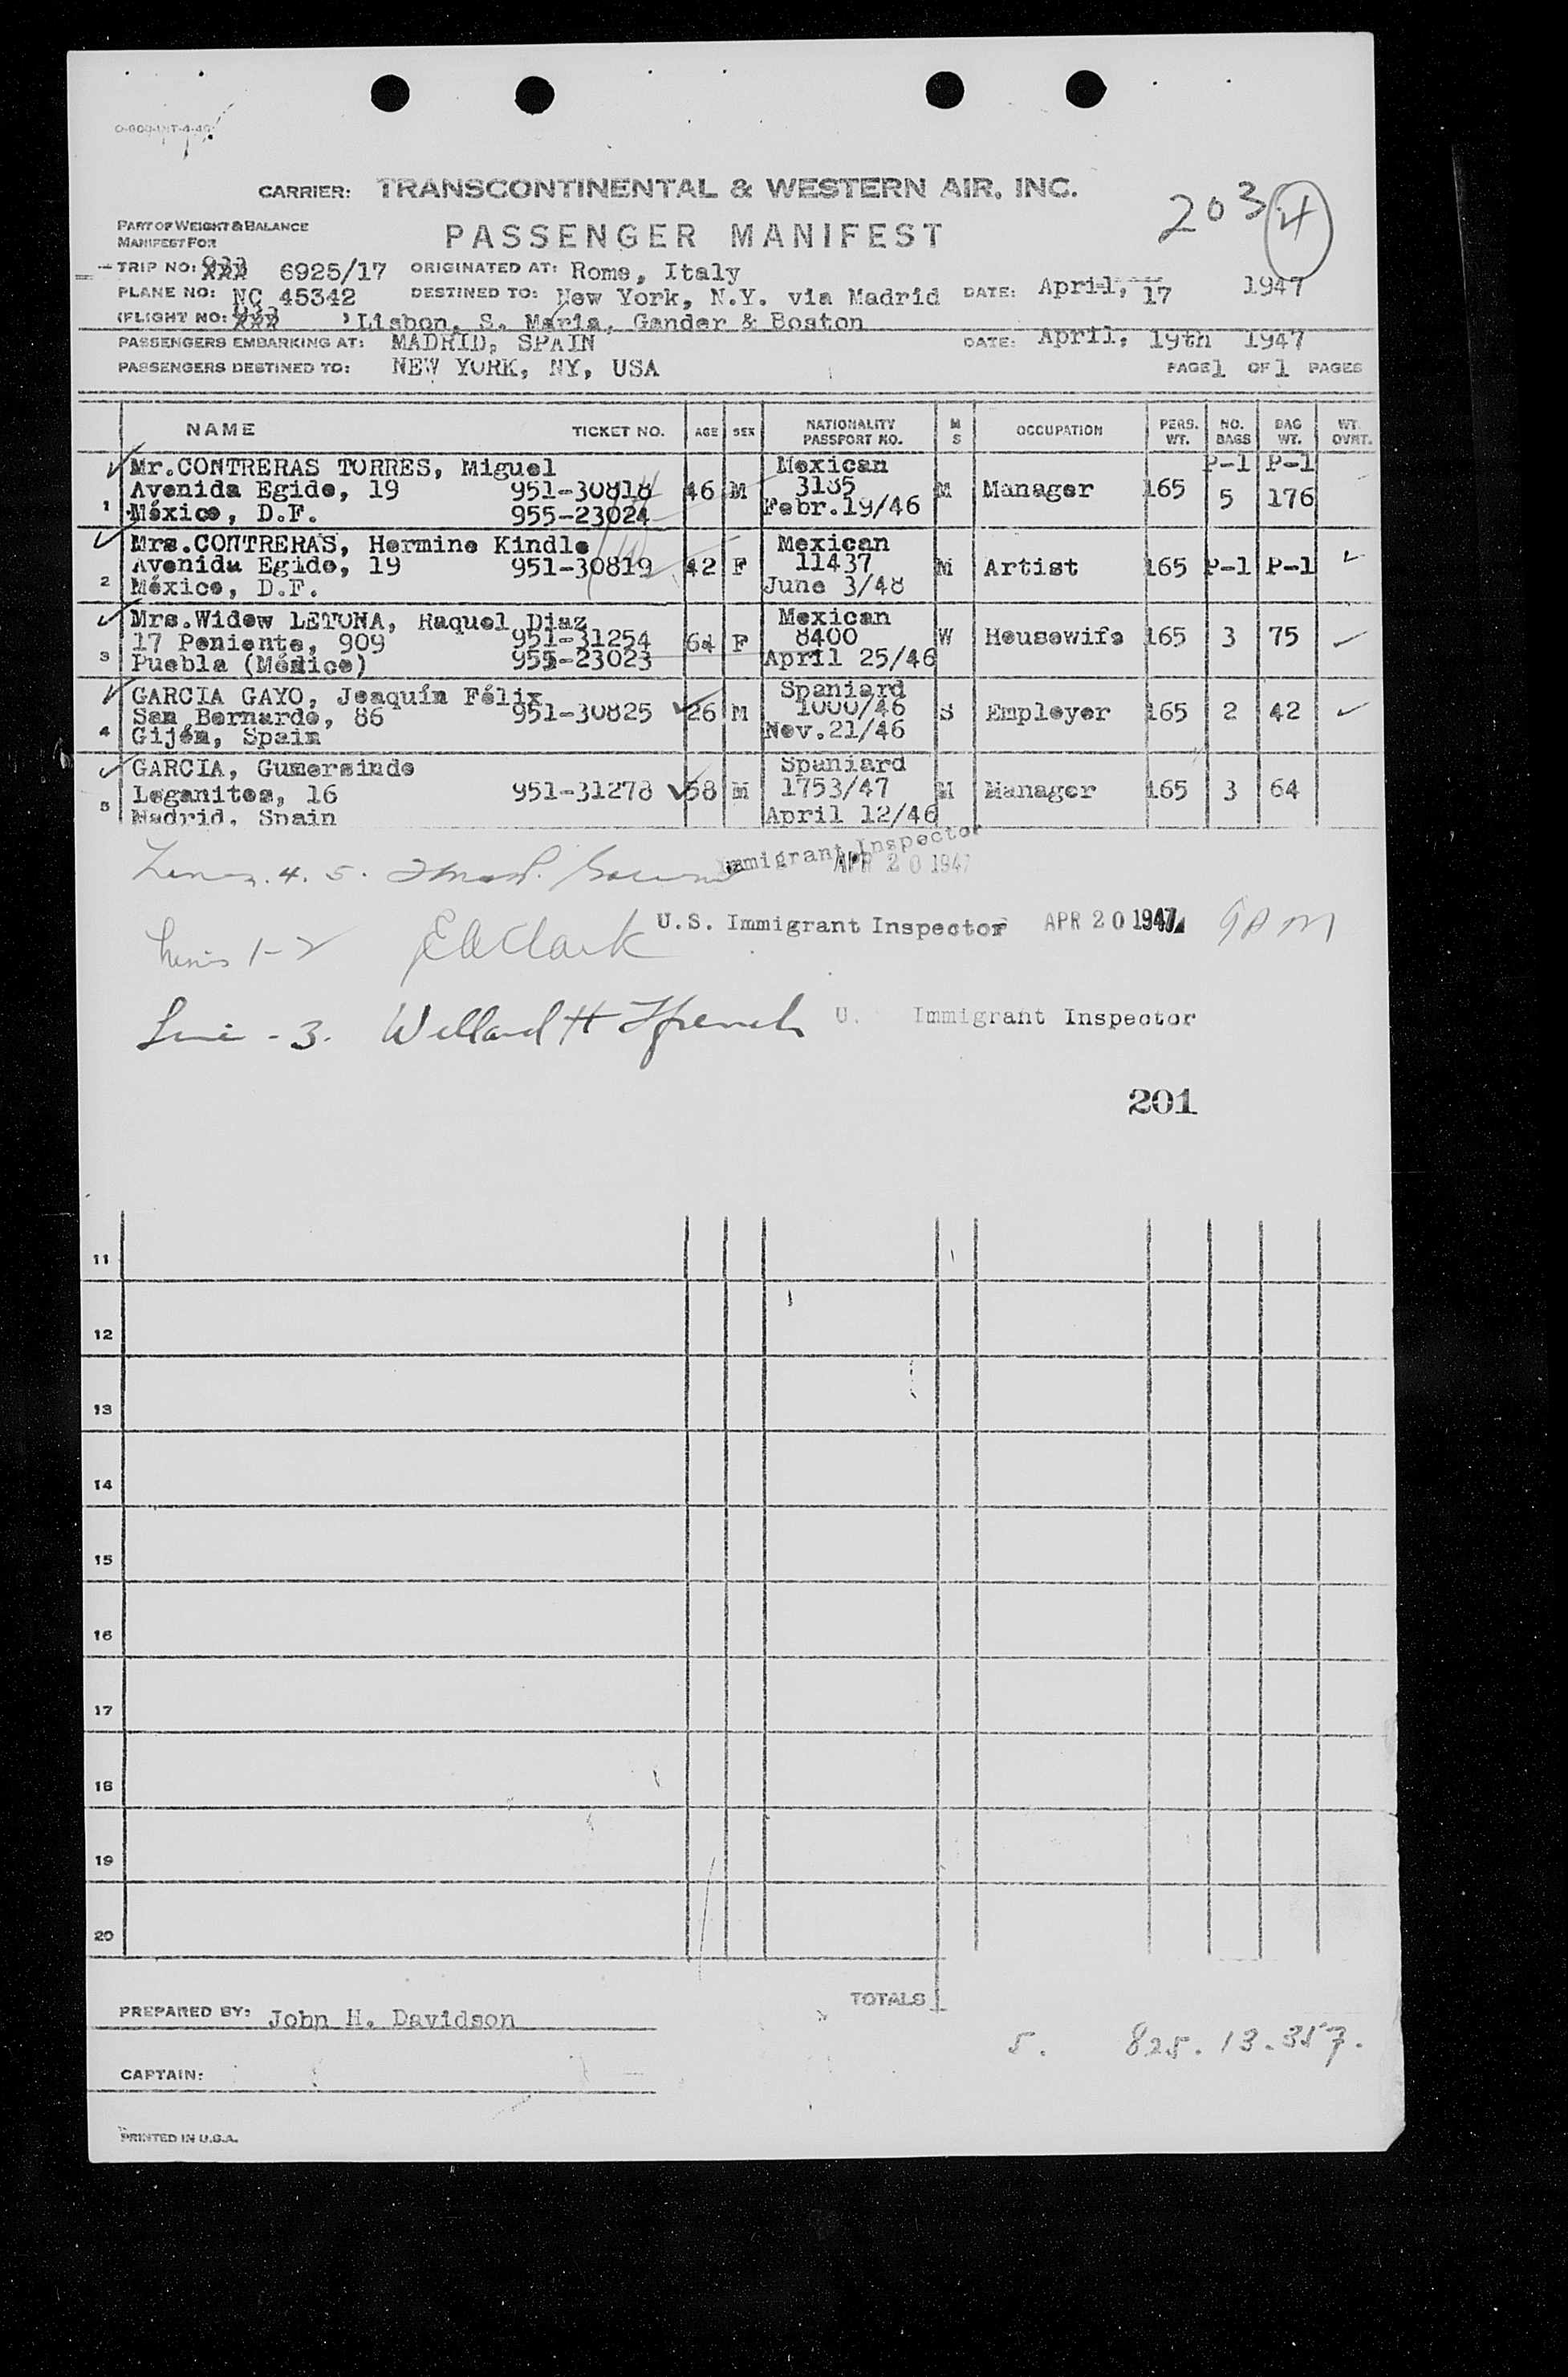 CARRIER: TRANSCONTINENTAL & WESTERN AIR, INC.
203 4
PART OF WEIGHT & BALANCE
MANIFEST FOR
PASSENGER MANIFEST
TRIP NO: XXX 6925/17 ORIGINATED AT: Rome, Italy
PLANE NO: NC 45342 DESTINED TO: New York, N.Y. via Madrid DATE: April, 17 1947
(FLIGHT NO: XXX ) Lisbon, S. Maria, Gander & Boston
PASSENGERS EMBARKING AT: MADRID, SPAIN DATE: April, 19th 1947
PASSENGERS DESTINED TO: NEW YORK, NY, USA PAGE 1 OF 1 PAGES
NAME TICKET NO. AGE SEX NATIONALITY PASSPORT NO. M S OCCUPATION PERS. WT. NO. BAGS BAG WT. WT. OVRT.
Mr.CONTRERAS TORRES, Miguel Mexican P-1 P-1
Avenida Egido, 19 951-30818 46 M 3185 M Manager 165 5 176
1 México, D.F. 955-23024 Febr.19/46
Mrs.CONTRERAS, Hermine Kindle Mexican
Avenida Egido, 19 951-30819 42 F 11437 M Artist 165 P-1 P-1
2 México, D.F. June 3/48
Mrs.Widow LETONA, Raquel Diaz Mexican
17 Poniente, 909 951-31254 64 F 8400 W Housewife 165 3 75
3 Puebla (México) 955-23023 April 25/46
GARCIA GAYO, Joaquín Félix Spaniard
San Bernardo, 86 951-30825 26 M 1000/46 S Employer 165 2 42
4 Gijón, Spain Nov.21/46
GARCIA, Gumersindo Spaniard
Leganitos, 16 951-31278 58 M 1753/47 M Manager 165 3 64
5 Madrid, Spain April 12/46
Lines. 4. 5. Immigrant Inspector
APR 20 1947
Lines 1-2 E A Clark U.S. Immigrant Inspector APR 20 1947 9 AM
Line - 3. Willard H French U. Immigrant Inspector
201
11
12
13
14
15
16
17
18
19
20
TOTALS
PREPARED BY: John H. Davidson
5. 825. 13. 357.
CAPTAIN:
PRINTED IN U.S.A.